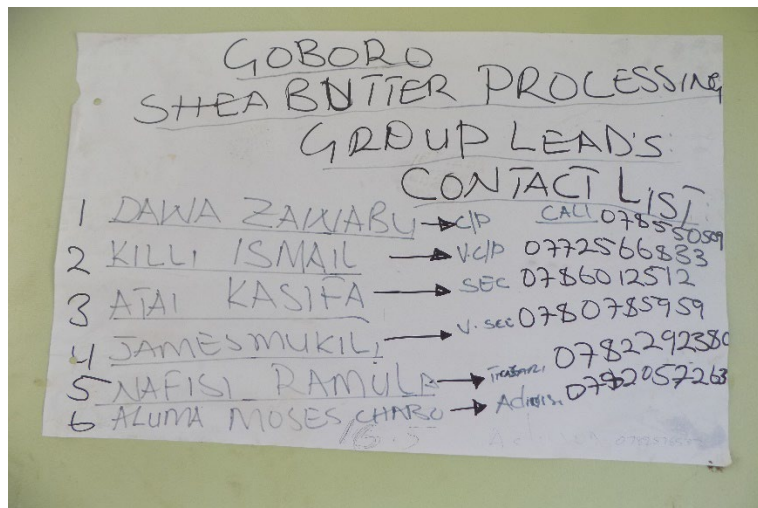 GOBORO
SHEA BUTTER PROCESSING
GROUP LEAD'S
CONTACT LIST
1 DAWA ZAWABU → C/P CALL 0785550509
2 KILLI ISMAIL → V.C/P 0772566833
3 ATAI KASIFA → SEC 0786012512
4 JAMES MUKILI → V. SEC 0780785959
5 NAFISI RAMULA → 0782292380
6 ALUMA MOSES CHABO → Admis. 0782057263
16.5